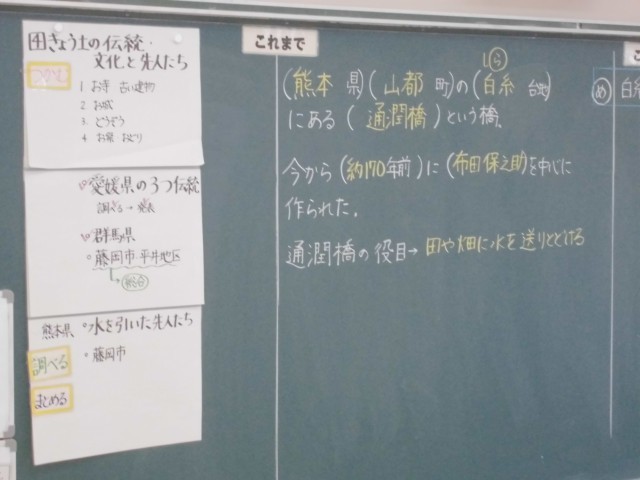 田きょう土の伝統・
文化と先人たち
つかむ
1 お寺 古い建物
2 お城
3 どうぞう
4 お祭 おどり
愛媛県の3つ伝統
調べる→発表
群馬県
藤岡市平井地区
総合
熊本県 水を引いた先人たち
藤岡市
調べる
まとめる
これまで
しら
(熊本 県)(山都 町)の(白糸 台地)
にある(通潤橋)という橋。
今から(約170年前)に(布田保之助)を中心に
作られた。
通潤橋の役目→田や畑に水を送りとどける
こ
め 白糸